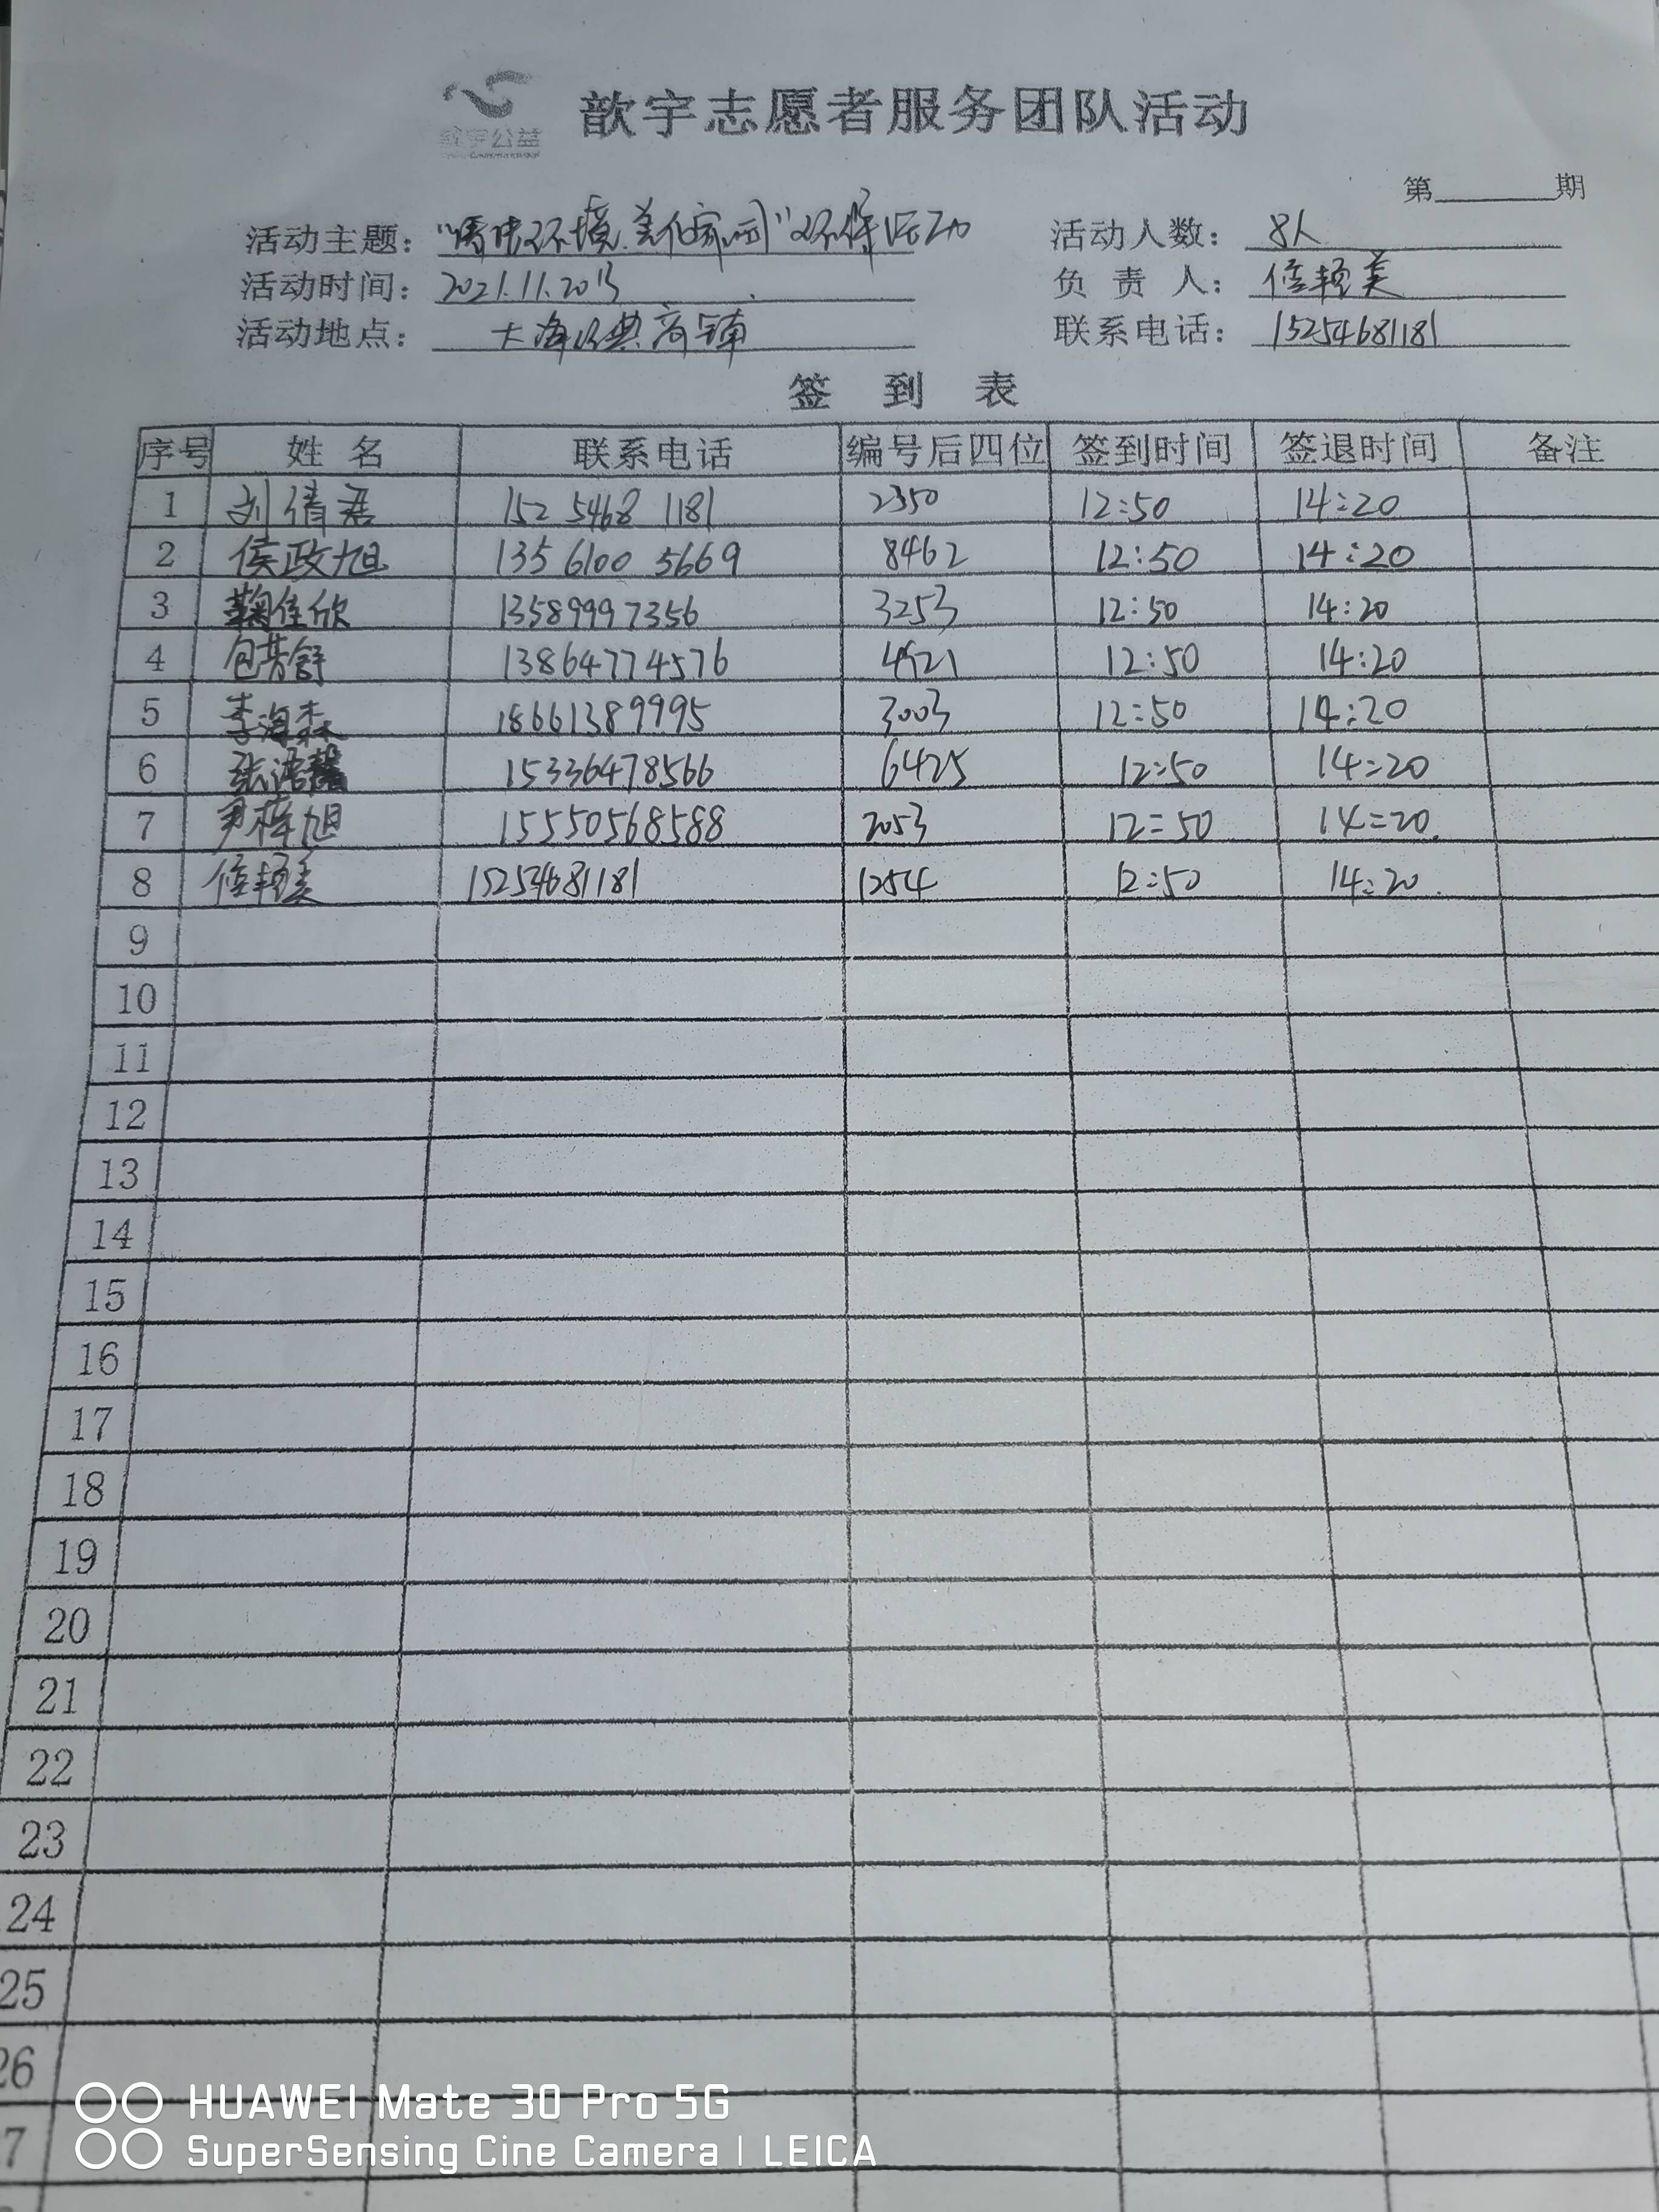 歆宇公益
歆宇志愿者服务团队活动
第 期
活动主题: "清洁环境.美化家园"环保活动 活动人数: 8人
活动时间: 2021.11.20 负 责 人: 侯艳美
活动地点: 大海经典商铺 联系电话: 15254681181
签 到 表
序号 姓 名 联系电话 编号后四位 签到时间 签退时间 备注
1 刘倩君 152 5468 1181 2350 12:50 14:20
2 侯政旭 135 6100 5669 8462 12:50 14:20
3 鞠佳欣 13589997356 3253 12:50 14:20
4 包芳舒 13864774576 4921 12:50 14:20
5 李海森 18661389995 3003 12:50 14:20
6 张浩 15336478566 6425 12:50 14:20
7 尹梓旭 15550568588 2053 12:50 14:20
8 侯艳美 15254681181 1254 12:50 14:20
9
10
11
12
13
14
15
16
17
18
19
20
21
22
23
24
25
26
7
HUAWEI Mate 30 Pro 5G
SuperSensing Cine Camera | LEICA